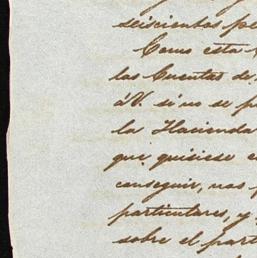 seiscientos
Como esta
las Cuentas de
á V. si no se
la Hacienda
que quisiese
conseguir, nos
particulares, y
sobre el part